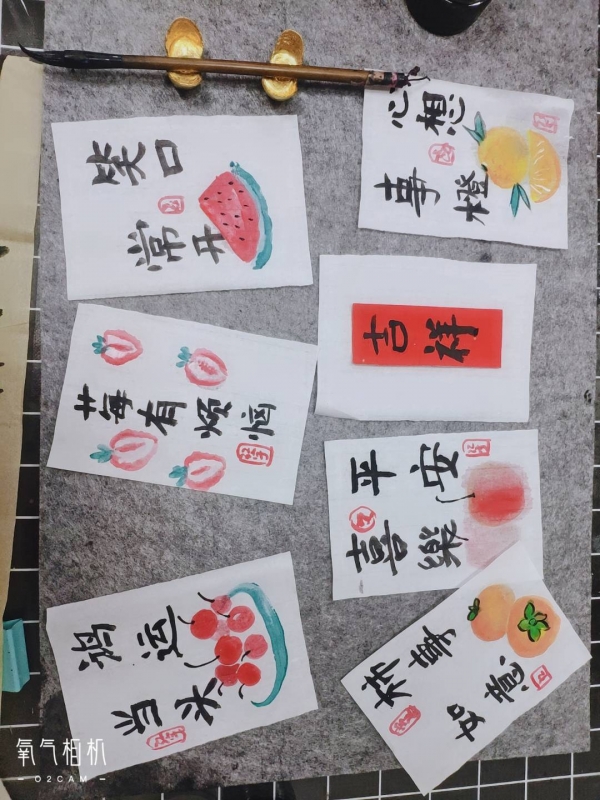 笑口
常开
心想
事橙
吉祥
莓有烦恼
平安
喜樂
鸿运
当头
柿事
如意
氧气相机
- O2CAM -